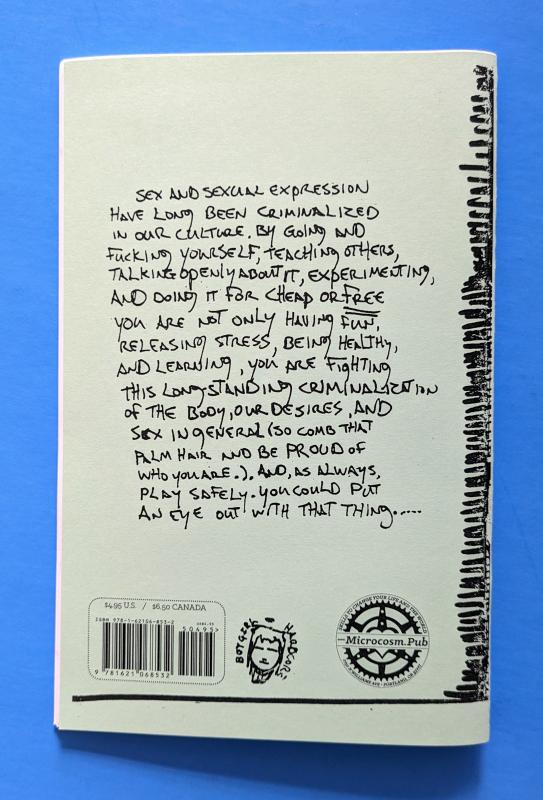 SEX AND SEXUAL EXPRESSION
HAVE LONG BEEN CRIMINALIZED
IN OUR CULTURE. BY GOING AND
FUCKING YOURSELF, TEACHING OTHERS,
TALKING OPENLY ABOUT IT, EXPERIMENTING,
AND DOING IT FOR CHEAP OR FREE
YOU ARE NOT ONLY HAVING FUN,
RELEASING STRESS, BEING HEALTHY,
AND LEARNING, YOU ARE FIGHTING
THIS LONGSTANDING CRIMINALIZATION
OF THE BODY, OUR DESIRES, AND
SEX IN GENERAL (SO COMB THAT
PALM HAIR AND BE PROUD OF
WHO YOU ARE.). AND, AS ALWAYS,
PLAY SAFELY. YOU COULD PUT
AN EYE OUT WITH THAT THING.....
$4.95 U.S. / $6.50 CANADA
ISBN 978-1-62106-853-2
50495>
9 781621 068532
TO CHANGE YOUR LIFE AND THE WORLD
Microcosm.Pub
WILLIAMS AVE • PORTLAND, OR